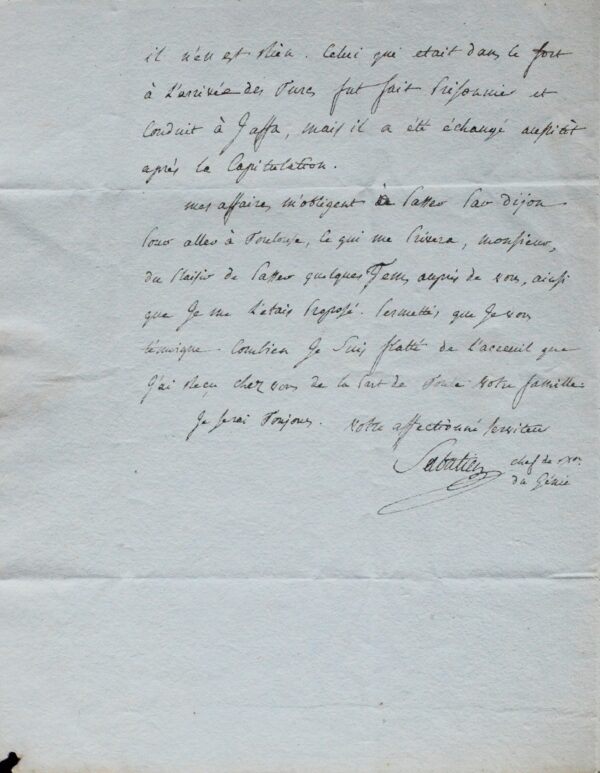 il n'en est rien. Celui qui etait dans le fort
à l'arrivée des Turcs fut fait prisonnier et
Conduit à Jaffa, mais il a été échangé aussitôt
après la Capitulation.
mes affaires m'obligent de passer par dijon
pour aller à Toulouse, ce qui me privera, monsieur,
du plaisir de passer quelques Tems auprès de vous, ainsi
que Je me l'etais proposé. permettés que Je vous
témoigne Combien Je suis flatté de l'acceuil que
J'ai reçu chez vous de la part de Toute votre famille.
Je serai Toujours. votre affectionné serviteur
Sabatier chef de
du Génie